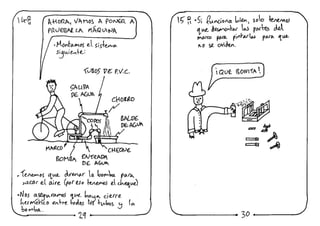 14º
AHORA, VAMOS A PONER A
PRUEBA LA MÁQUINA
• Montamos el sistema
siguiente:
TUBOS DE P.V.C.
SALIDA
DE AGUA
CHORRO
BALDE
DE AGUA
MARCO
BOMBA
ENTRADA
DE AGUA
CHEQUE
• Tenemos que drenar la bomba para
sacar el aire (por eso tenemos el cheque)
• Nos aseguramos que haya cierre
hermético entre todos los tubos y la
bomba.
29
15º
• Si funciona bien, solo tenemos
que desmontar las partes del
marco para pintarlas para que
no se oxiden.
¡QUE BONITA!
30